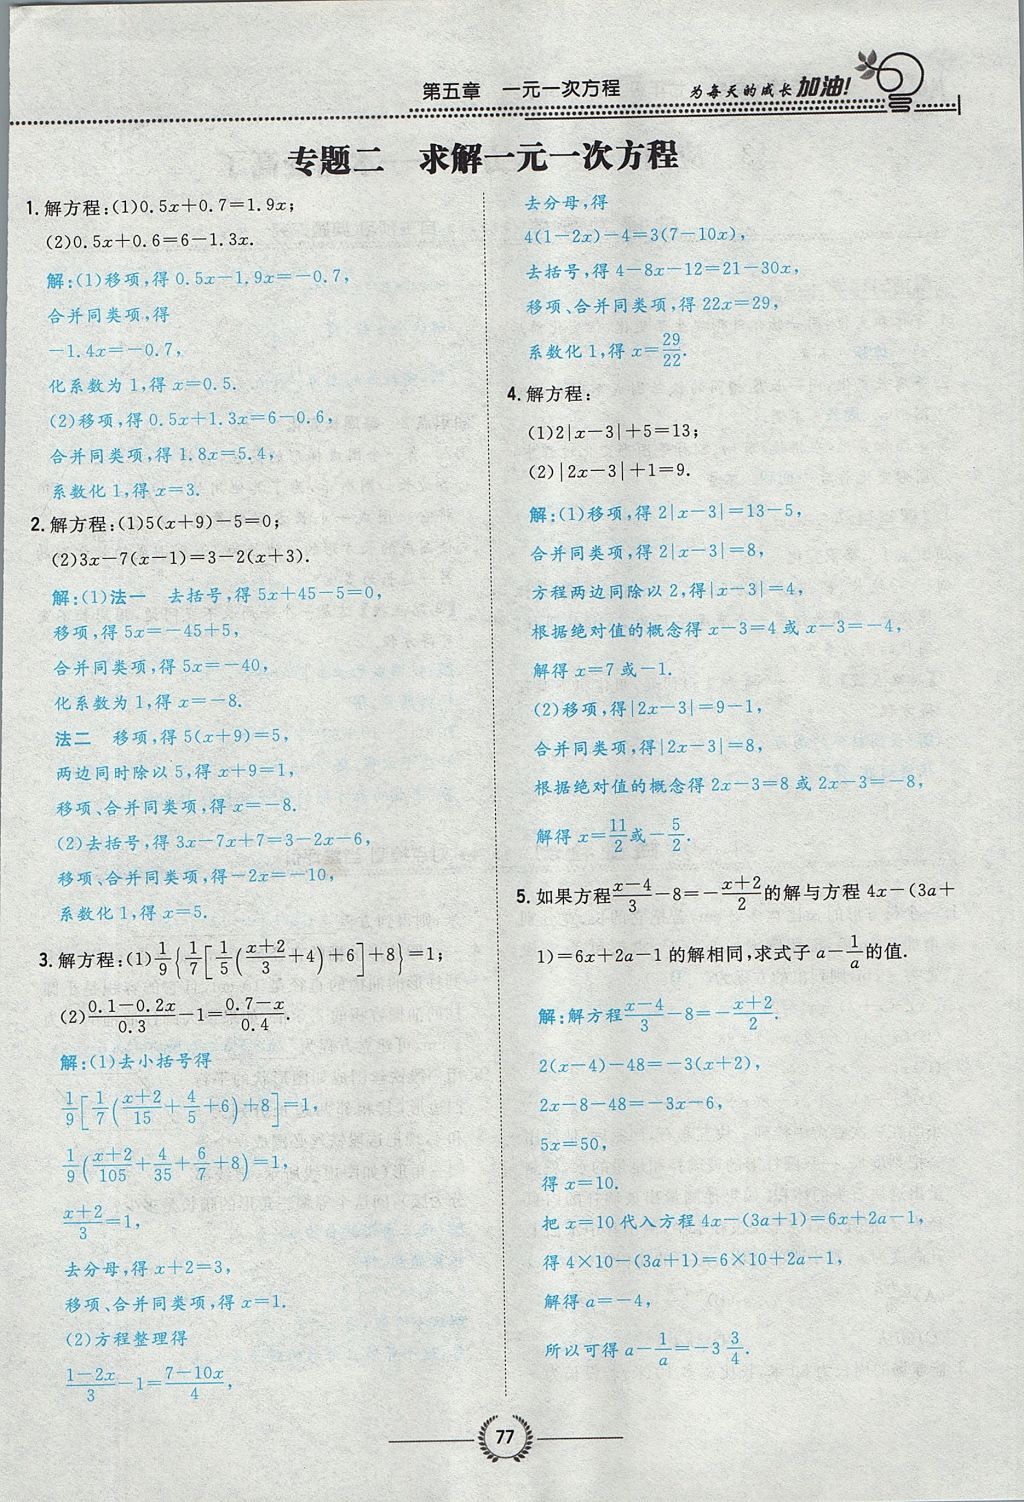 第五章　一元一次方程
为每天的成长加油!
专题二　求解一元一次方程
1.解方程:(1)0.5x+0.7=1.9x;
(2)0.5x+0.6=6-1.3x.
解:(1)移项,得0.5x-1.9x=-0.7,
合并同类项,得
-1.4x=-0.7,
化系数为1,得x=0.5.
(2)移项,得0.5x+1.3x=6-0.6,
合并同类项,得1.8x=5.4,
系数化1,得x=3.
2.解方程:(1)5(x+9)-5=0;
(2)3x-7(x-1)=3-2(x+3).
解:(1)法一　去括号,得5x+45-5=0,
移项,得5x=-45+5,
合并同类项,得5x=-40,
化系数为1,得x=-8.
法二　移项,得5(x+9)=5,
两边同时除以5,得x+9=1,
移项、合并同类项,得x=-8.
(2)去括号,得3x-7x+7=3-2x-6,
移项、合并同类项,得-2x=-10,
系数化1,得x=5.
3.解方程:(1)1/9{1/7[1/5((x+2)/3+4)+6]+8}=1;
(2)(0.1-0.2x)/0.3-1=(0.7-x)/0.4.
解:(1)去小括号得
1/9[1/7((x+2)/15+4/5+6)+8]=1,
1/9((x+2)/105+4/35+6/7+8)=1,
(x+2)/3=1,
去分母,得x+2=3,
移项、合并同类项,得x=1.
(2)方程整理得
(1-2x)/3-1=(7-10x)/4,
去分母,得
4(1-2x)-4=3(7-10x),
去括号,得4-8x-12=21-30x,
移项、合并同类项,得22x=29,
系数化1,得x=29/22.
4.解方程:
(1)2|x-3|+5=13;
(2)|2x-3|+1=9.
解:(1)移项,得2|x-3|=13-5,
合并同类项,得2|x-3|=8,
方程两边同除以2,得|x-3|=4,
根据绝对值的概念得x-3=4或x-3=-4,
解得x=7或-1.
(2)移项,得|2x-3|=9-1,
合并同类项,得|2x-3|=8,
根据绝对值的概念得2x-3=8或2x-3=-8,
解得x=11/2或-5/2.
5.如果方程(x-4)/3-8=-(x+2)/2的解与方程4x-(3a+
1)=6x+2a-1的解相同,求式子a-1/a的值.
解:解方程(x-4)/3-8=-(x+2)/2.
2(x-4)-48=-3(x+2),
2x-8-48=-3x-6,
5x=50,
得x=10.
把x=10代入方程4x-(3a+1)=6x+2a-1,
得4×10-(3a+1)=6×10+2a-1,
解得a=-4,
所以可得a-1/a=-3 3/4.
77